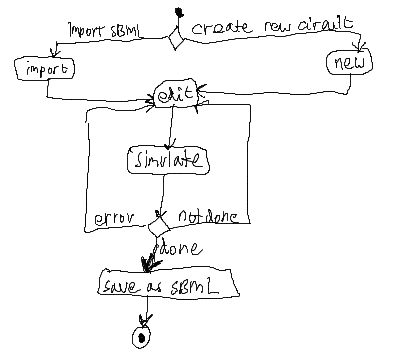 Import SBML
create new circuit
import
new
edit
simulate
error
not done
done
save as SBML